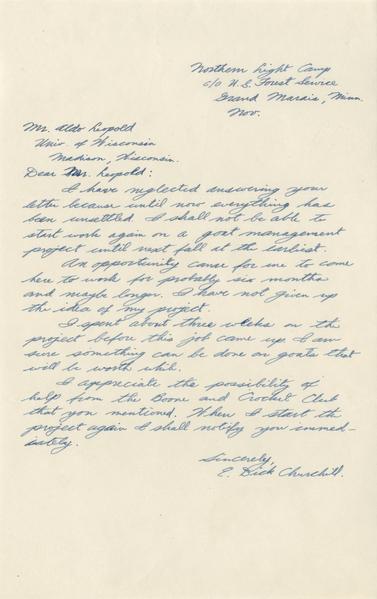 Northern Light Camp
c/o U.S. Forest Service
Grand Marais, Minn.
Nov.
Mr. Aldo Leopold
Univ of Wisconsin
Madison, Wisconsin.
Dear Mr. Leopold:
I have neglected answering your
letter because until now everything has
been unsettled. I shall not be able to
start work again on a goat management
project until next fall at the earliest.
An opportunity came for me to come
here to work for probably six months
and maybe longer. I have not given up
the idea of my project.
I spent about three weeks on the
project before this job came up. I am
sure something can be done on goats that
will be worth while.
I appreciate the possibility of
help from the Boone and Crocket Club
that you mentioned. When I start the
project again I shall notify you immed-
iately.
Sincerely,
E. Dick Churchill.